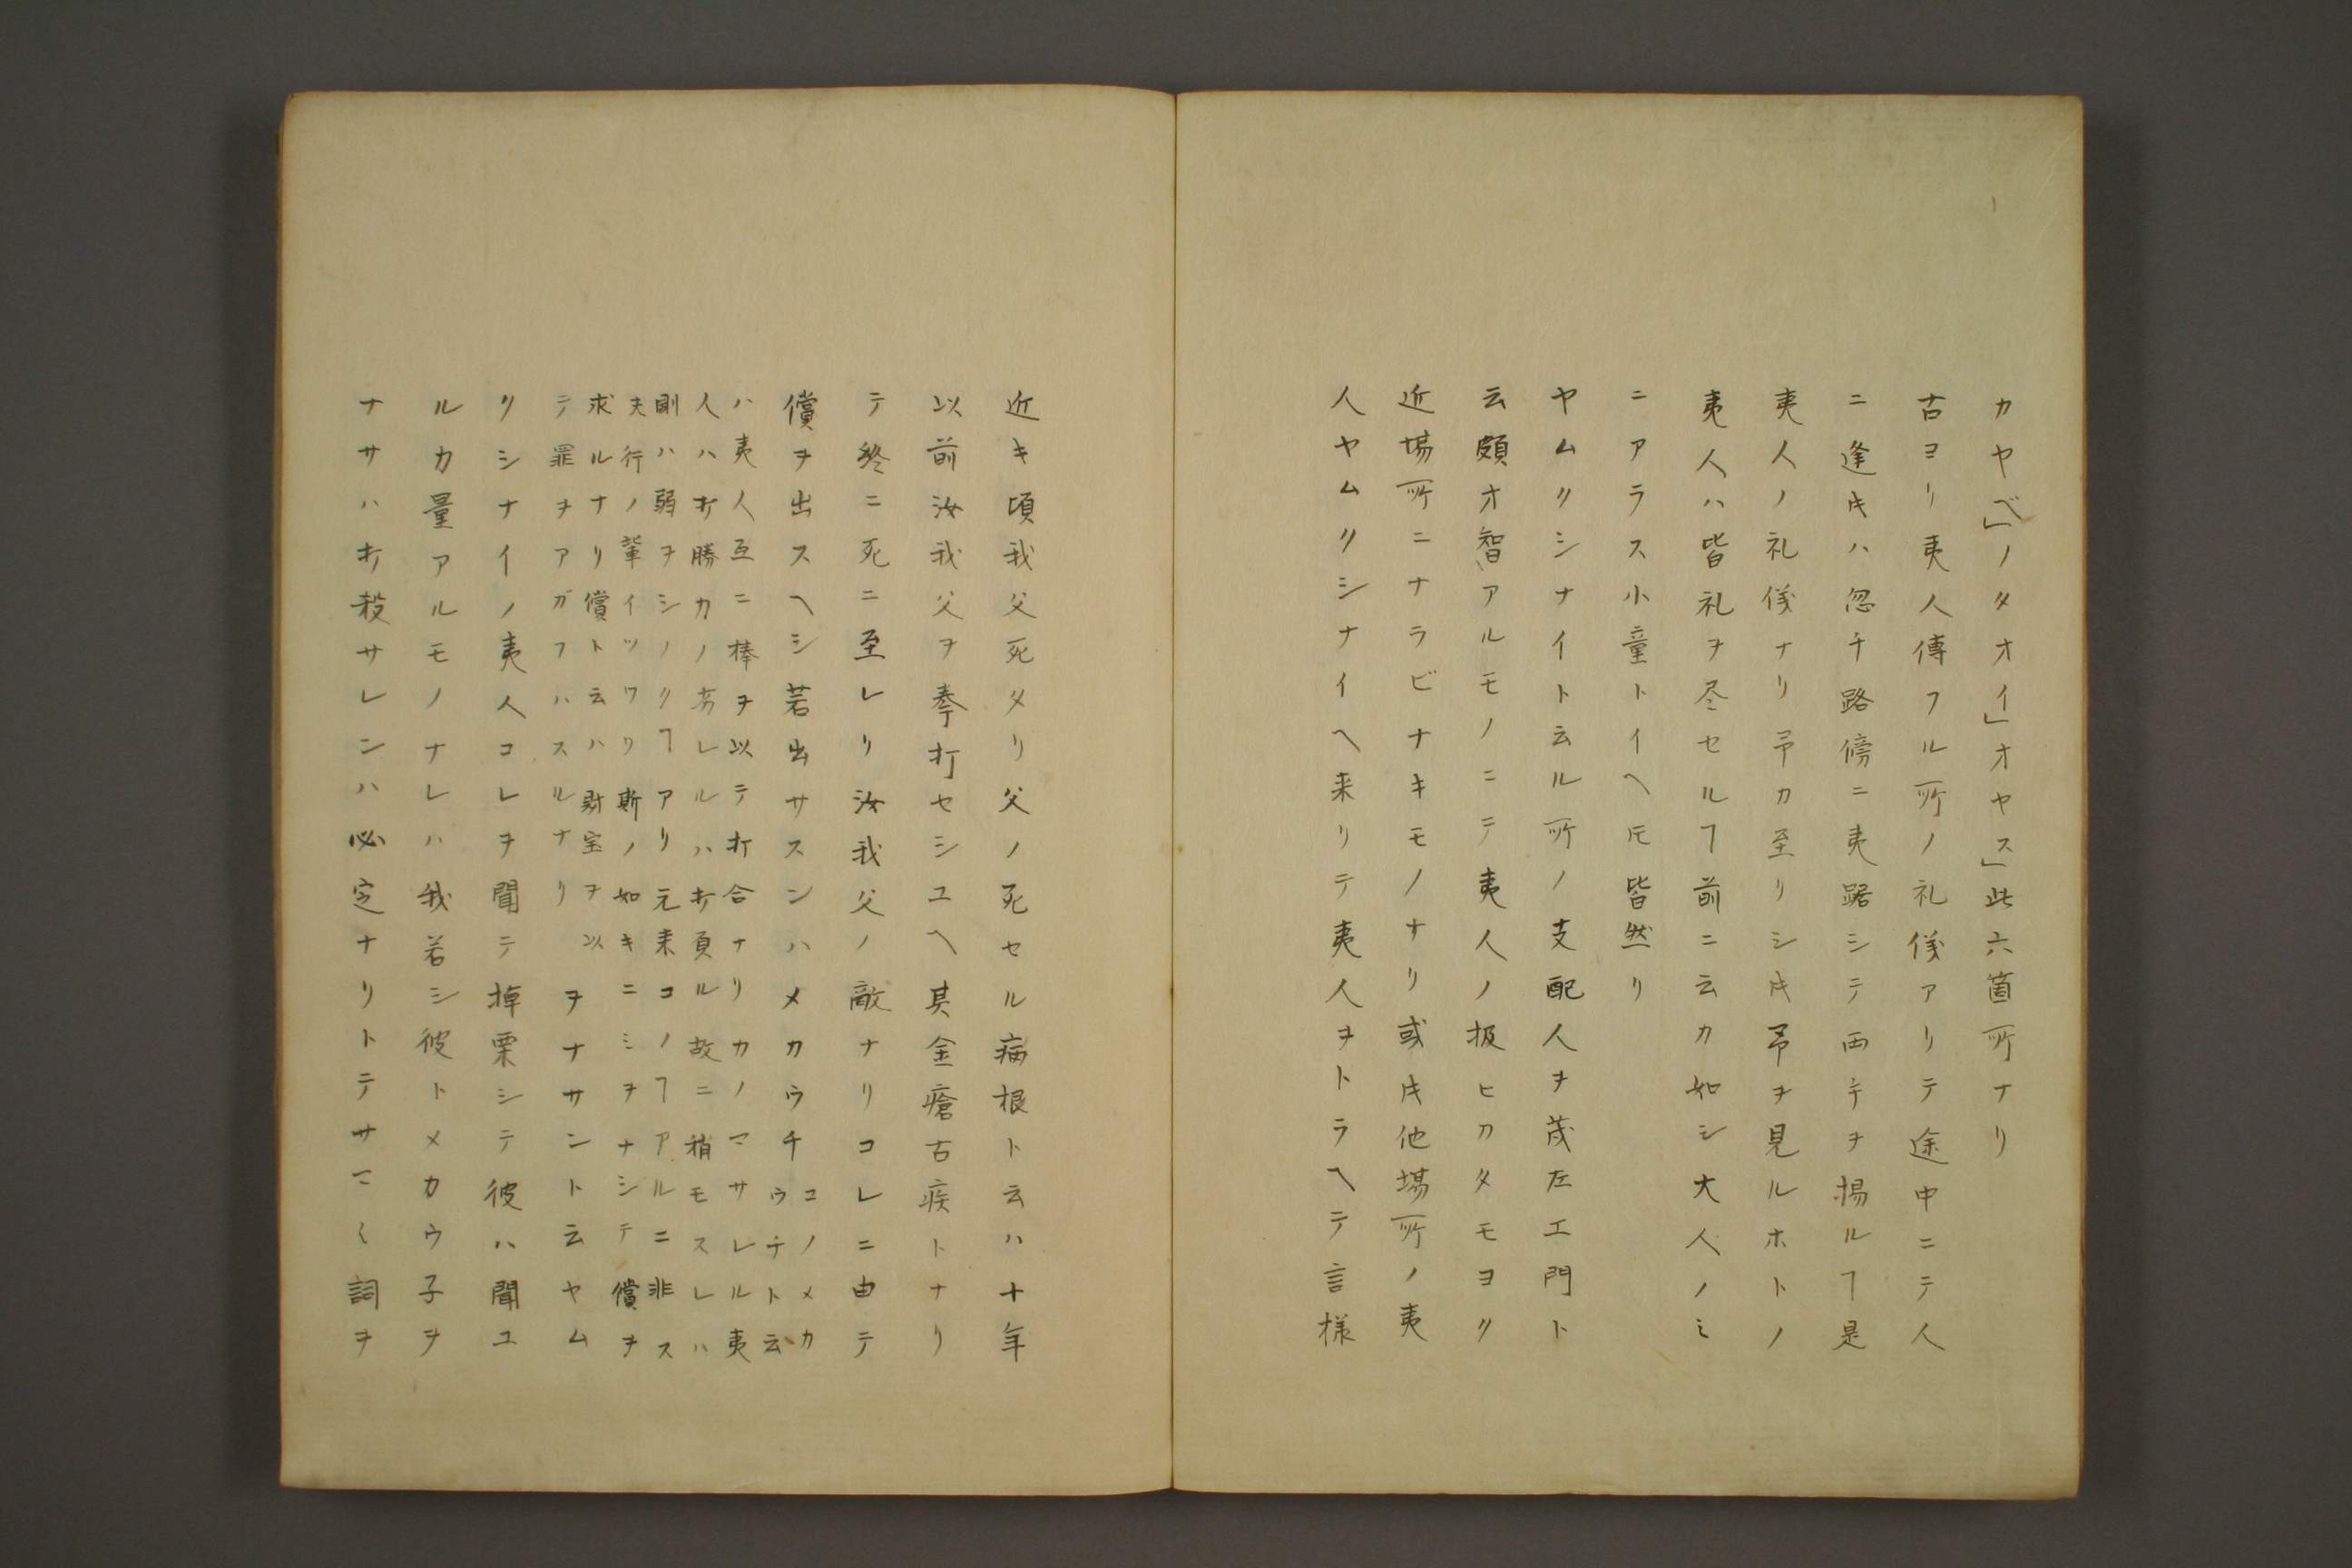 カヤベ」ノタオイ」オヤス」此六箇所ナリ
古ヨリ夷人傳フル所ノ礼儀アリテ途中ニテ人
ニ逢ヰハ忽チ路傍ニ夷踞シテ両手ヲ揚ルヿ是
夷人ノ礼儀ナリ予カ至リシ𪜈予ヲ見ルホトノ
夷人ハ皆礼ヲ尽セルヿ前ニ云カ如シ大人ノミ
ニアラス小童トイヘ𪜈皆然リ
ヤムクシナイト云ル所ノ支配人ヲ茂左エ門ト
云頗才智アルモノニテ夷人ノ扱ヒカタモヨク
近場所ニナラビナキモノナリ或𪜈他場所ノ夷
人ヤムクシナイヘ来リテ夷人ヲトラヘテ言様
近キ頃我父死タリ父ノ死セル病根ト云ハ十年
以前汝我父ヲ拳打セシユヘ其金瘡古疾トナリ
テ終ニ死ニ至レリ汝我父ノ敵ナリコレニ由テ
償ヲ出スヘシ若出サスンハメカウチ
コノメカ
ウチト云
ハ夷人互ニ棒ヲ以テ打合ナリカノマサレル夷
人ハ打勝カノ劣レルハ打負ル故ニ稍モスレハ
剛ハ弱ヲシノクヿアリ元来コノヿアルニ非ス
夫行ノ輩イツワリ斯ノ如キニミヲナシテ償ヲ
求ルナリ償ト云ハ財宝ヲ以
テ罪ヲアガフハスルナリ
ヲナサント云ヤム
クシナイノ夷人コレヲ聞テ掉栗シテ彼ハ聞ユ
ルカ量アルモノナレハ我若シ彼トメカウ子ヲ
ナサハ打殺サレンハ必定ナリトテサマ〱詞ヲ